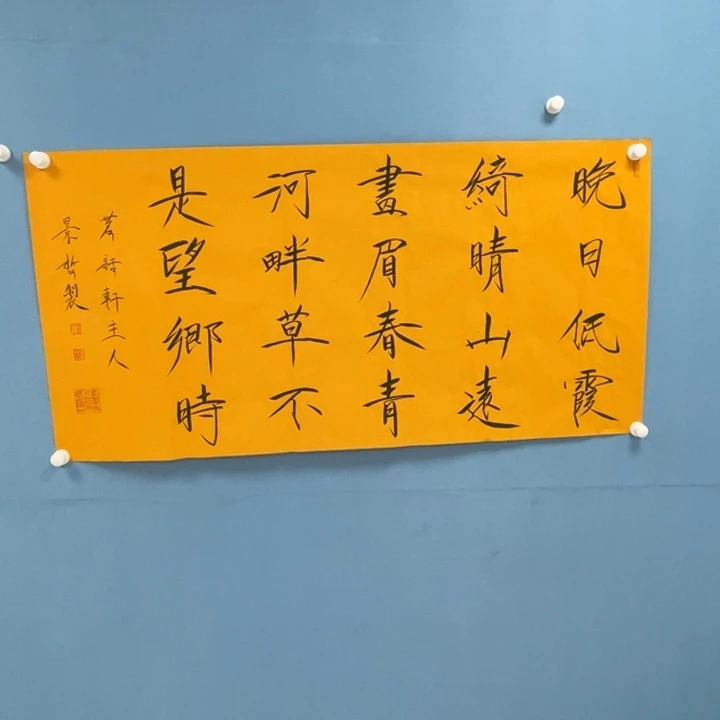 晚日低霞
綺晴山遠
畫眉春青
河畔草不
是望鄉時
茗語軒主人
景哲製